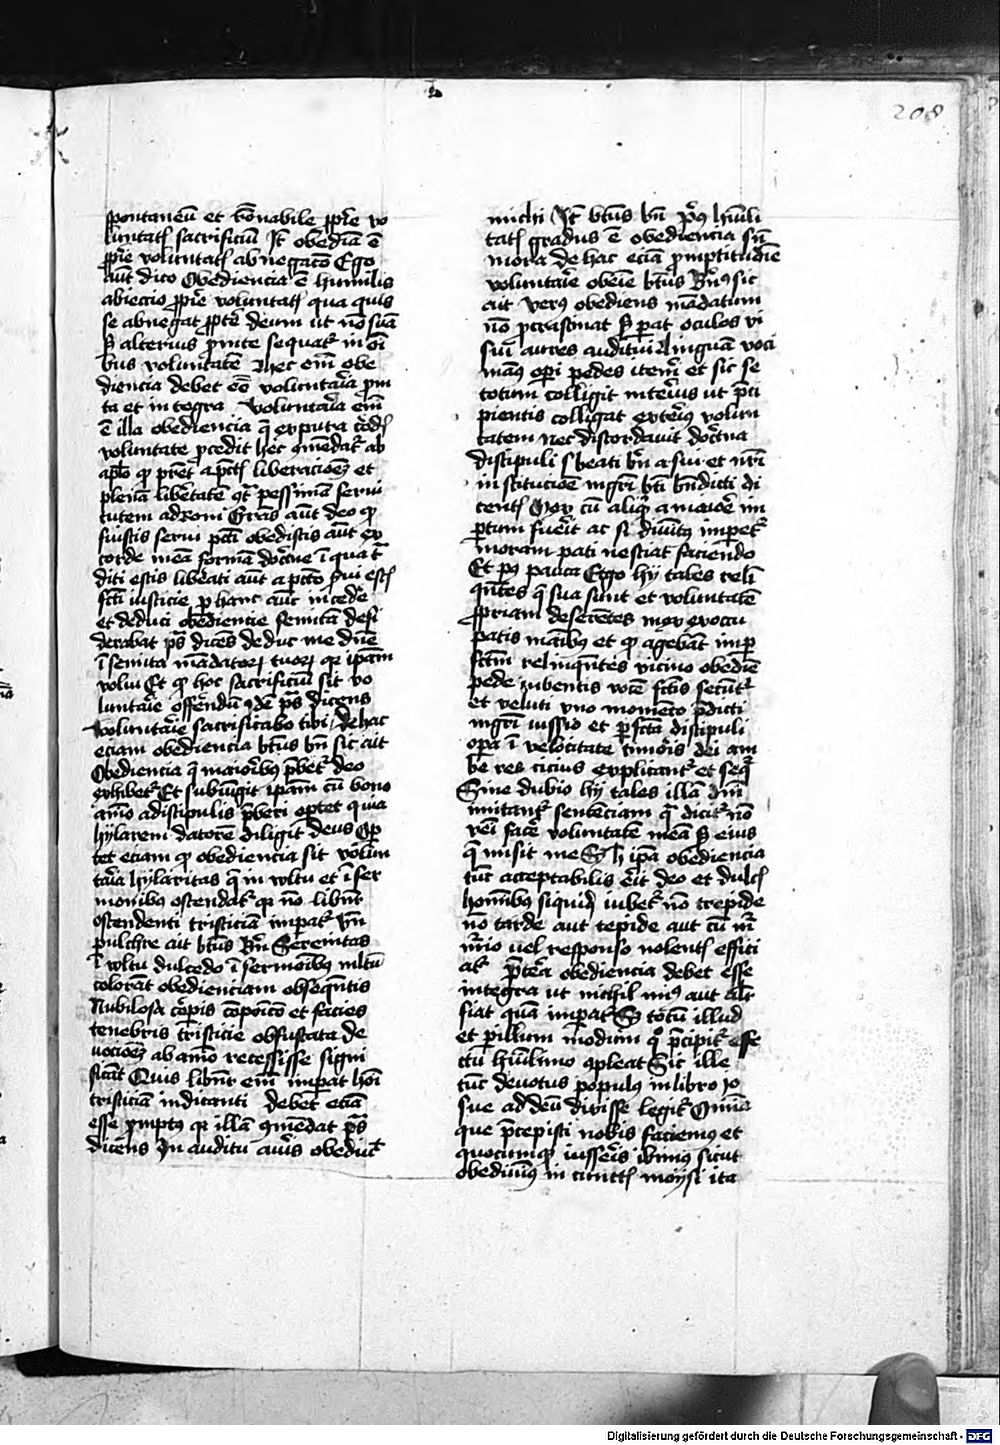 208
spontaneū et rōnabile ꝓprie vo
luntatꝭ sacrificiū Jt̄ obediā ē
ꝓprie voluntatꝭ abnegacō Ego
aūt dico Obediencia ē humilis
abiectio ꝓprie voluntatꝭ qua quis
se abnegat ꝓpt̄ deum ut nō suā
ꝫ alterius sequat᷑ in oī
bus voluntatē Hec em̄ obe
diencia debet eē voluntaria ꝓm
ta et integra Voluntaria em̄
ē illa obediencia q̄ ex pura cordꝭ
voluntate ꝓcedit hec ꝯmēdat᷑ ab
aplo ꝙ pret̄ a pctī liberacionē et
plenā libertatē ꝯt̄ pessimā servi
tutem ad Romī Grās aūt deo ꝙ
fuistis servi pcti obedistis aūt ex
corde in eā formā doctrīe ī qua t̄
diti estis liberati aūt a pctō servi estꝭ
fcti iusticie ꝑ hanc aūt incedē
et deduci obediencie semitā desi
derabat ps̄ dicēs deduc me dn̄e
ī semita mādatoꝝ tuoꝝ qꝛ ip̄am
volui Et ꝙ hoc sacrificiū sit vo
luntarie offerēdū ꝯdē ps̄ dicens
Voluntarie sacrificabo tibi / de hac
eciam obediencia btūs bn̄ sic ait
Obediencia q̄ maioribus p̄bet᷑ deo
exhibet᷑ Et subiungit ip̄am cū bono
aīmo a discipulis p̄beri optet quia
hylarem datorē diligit deus Op
tet eciam ꝙ obediencia sit volun
taria hylaritas q̄ in vultu et ī ser
monibus ostendat᷑ qꝛ nō libn̄t᷑
ostendenti tristiciā impat᷑ Vn̄
pulchre ait btūs Bn̄ Serenitas
ī vultu dulcedo ī sermonibus mltū
colorāt obedienciam obseqn̄tis
Nubilosa corpis cōpoicō et facies
tenebris tristicie obfuscata de
uocionē ab aīmo recessisse signi
ficāt Quis libn̄t᷑ em̄ impat hoī
tristiciā indicanti debet eciā
esse ꝓmptꝰ qꝛ illā ꝯmēdat ps̄
dicēns In auditu auris obeduīt
michi Jt̄ btūs bn̄ pꝰ humili
tatꝭ gradus ē obediencia sn̄
mora de hac eciā ꝓmptitudīe
voluntarie obeīe btūs Bn̄ꝰ sic
ait verꝰ obediens mādatum
nō ꝓcrastinat ꝫ pat oculos vi
sui aures auditui linguā voci
manꝰ opī pedes itenī et sic se
totum colligit interius ut p̄ci
pientis colligat exterius volun
tatem Nec discordavit doctrīa
discipuli beati bn̄ a sui et nr̄i
in scitucōē mgr̄i btī bn̄dicti di
centꝭ Mox cū aliqd a maiore im
ꝑtum fuerit ac si divinitꝰ impet᷑
moram pati nesciat faciendo
Et pꝰ pauca Ergo hy tales reli
qn̄tes q̄ sua sunt et voluntatē
ꝓpriam deserētes mox exoccu
patis manibus et ꝙ agebāt imꝑ
fctm̄ relinqn̄tes vicino obediē
pede iubentis vocē fctīs secunt᷑
et veluti vno momēto p̄dicti
mgr̄i iussio et ꝑfcta discipuli
opa ī velocitate timoris dei am
be res cicius explicant᷑ et seqr̄
Sine dubio hy tales illā dn̄i
imitant᷑ sentenciam q̄ dicit᷑ nō
veī facē voluntatē meā ꝫ eius
q̄ misit me Sꝫ h ip̄a obediencia
tūc acceptabilis erit deo et dulcꝭ
hominibus si quidꝭ iubet᷑ nō trepide
nō tarde aut tepide aut cū mr̄
mrīo uel responso nolentꝭ effici
at᷑ preterea obediencia debet esse
integra ut nichil minꝰ aut alit̄
fiat quā impat᷑ Sꝫ totū illud
et pillum modum qͦ p̄cipit᷑ effe
ctu humlimo ꝯpleat Sic ille
tūc devotus populꝰ in libro Jo
sue ad deū dixisse legit᷑ Omnia
que p̄cepisti nobis faciemꝰ et
quocumqꝫ iusseris ibimꝰ sicut
obediuimꝰ in cunctꝭ moysi ita
Digitalisierung gefördert durch die Deutsche Forschungsgemeinschaft - DFG